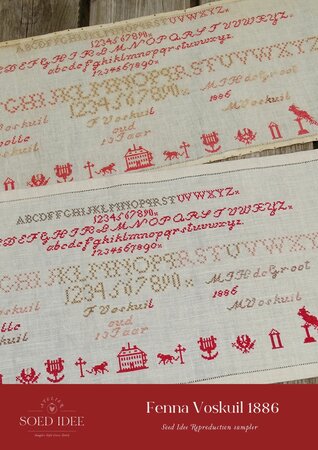 ABCDEFGHIJKLMNOPQRSTUVWXYZ
1234567890
abcdefghijklmnopqrstuvwxyz
1234567890
GHIJKLMNOPQRSTUVWXYZ
1234567890
F Voskuil
oud
13 Jaar
M I H de Groot
1886
M Voskuil
Voskuil
ABCDEFGHIJKLMNOPQRSTUVWXYZ
1234567890
abcdefghijklmnopqrstuvwxyz
1234567890
1234567890
F Voskuil
oud
13 Jaar
M I H de Groot
1886
M Voskuil
ATELIER
SOED IDEE
Fenna Voskuil 1886
Soed Idee Reproduction sampler